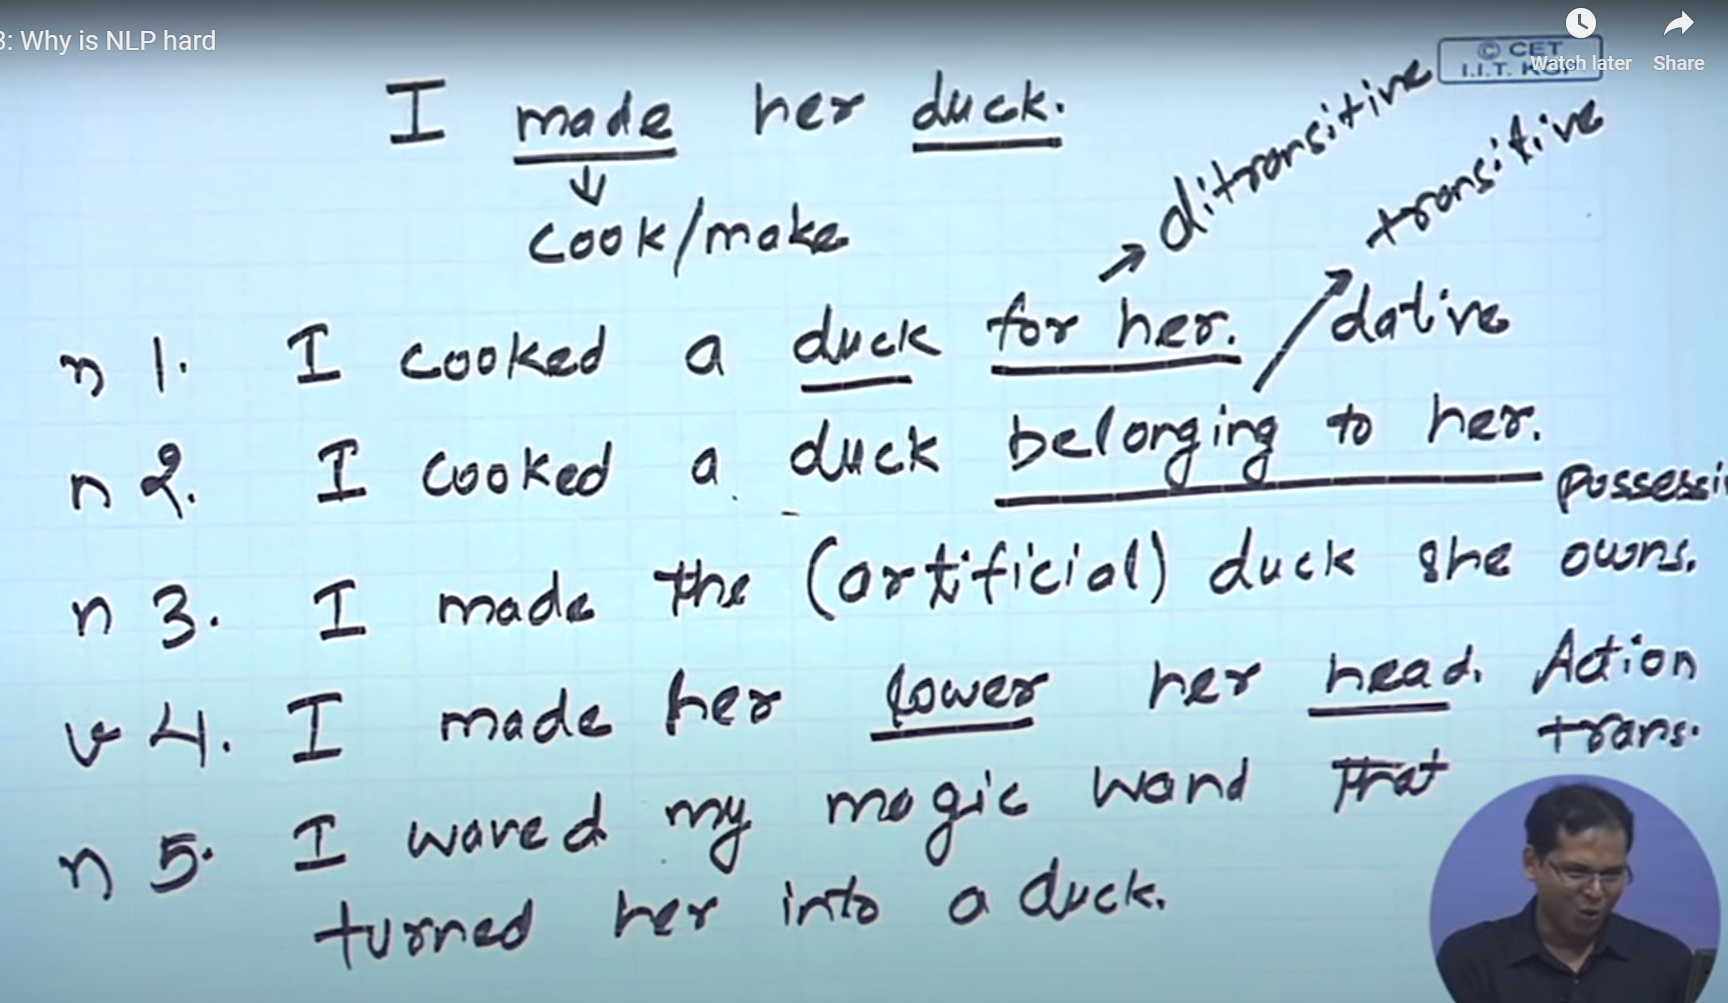 3: Why is NLP hard
Watch later Share
© CET
I.I.T. KGP
I made her duck.
cook/make
ditransitive
transitive
n 1. I cooked a duck for her. dative
n 2. I cooked a duck belonging to her.
possessi
n 3. I made the (artificial) duck she owns.
v 4. I made her lower her head. Action
trans.
n 5. I waved my magic wand that
turned her into a duck.